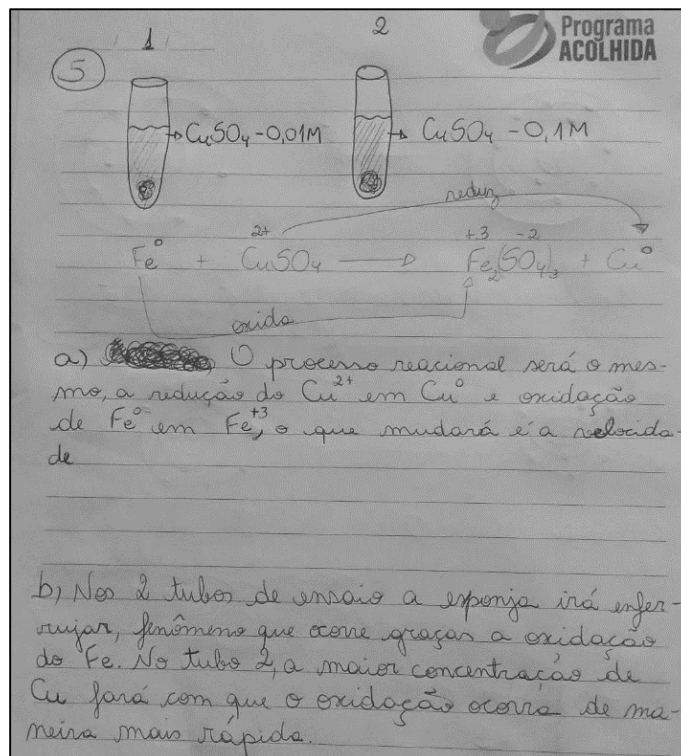 Programa
ACOLHIDA
5
1
2
CuSO4 - 0,01M
CuSO4 - 0,1M
reduz
2+
+3 -2
Fe° + CuSO4 → Fe2(SO4)3 + Cu°
oxida
a) O processo reacional será o mes-
mo, a redução do Cu2+ em Cu° e oxidação
de Fe° em Fe+3, o que mudará é a velocida-
de
b) Nos 2 tubos de ensaio a esponja irá enfer-
rujar, fenômeno que ocorre graças a oxidação
do Fe. No tubo 2, a maior concentração de
Cu fará com que o oxidação ocorra de ma-
neira mais rápida.